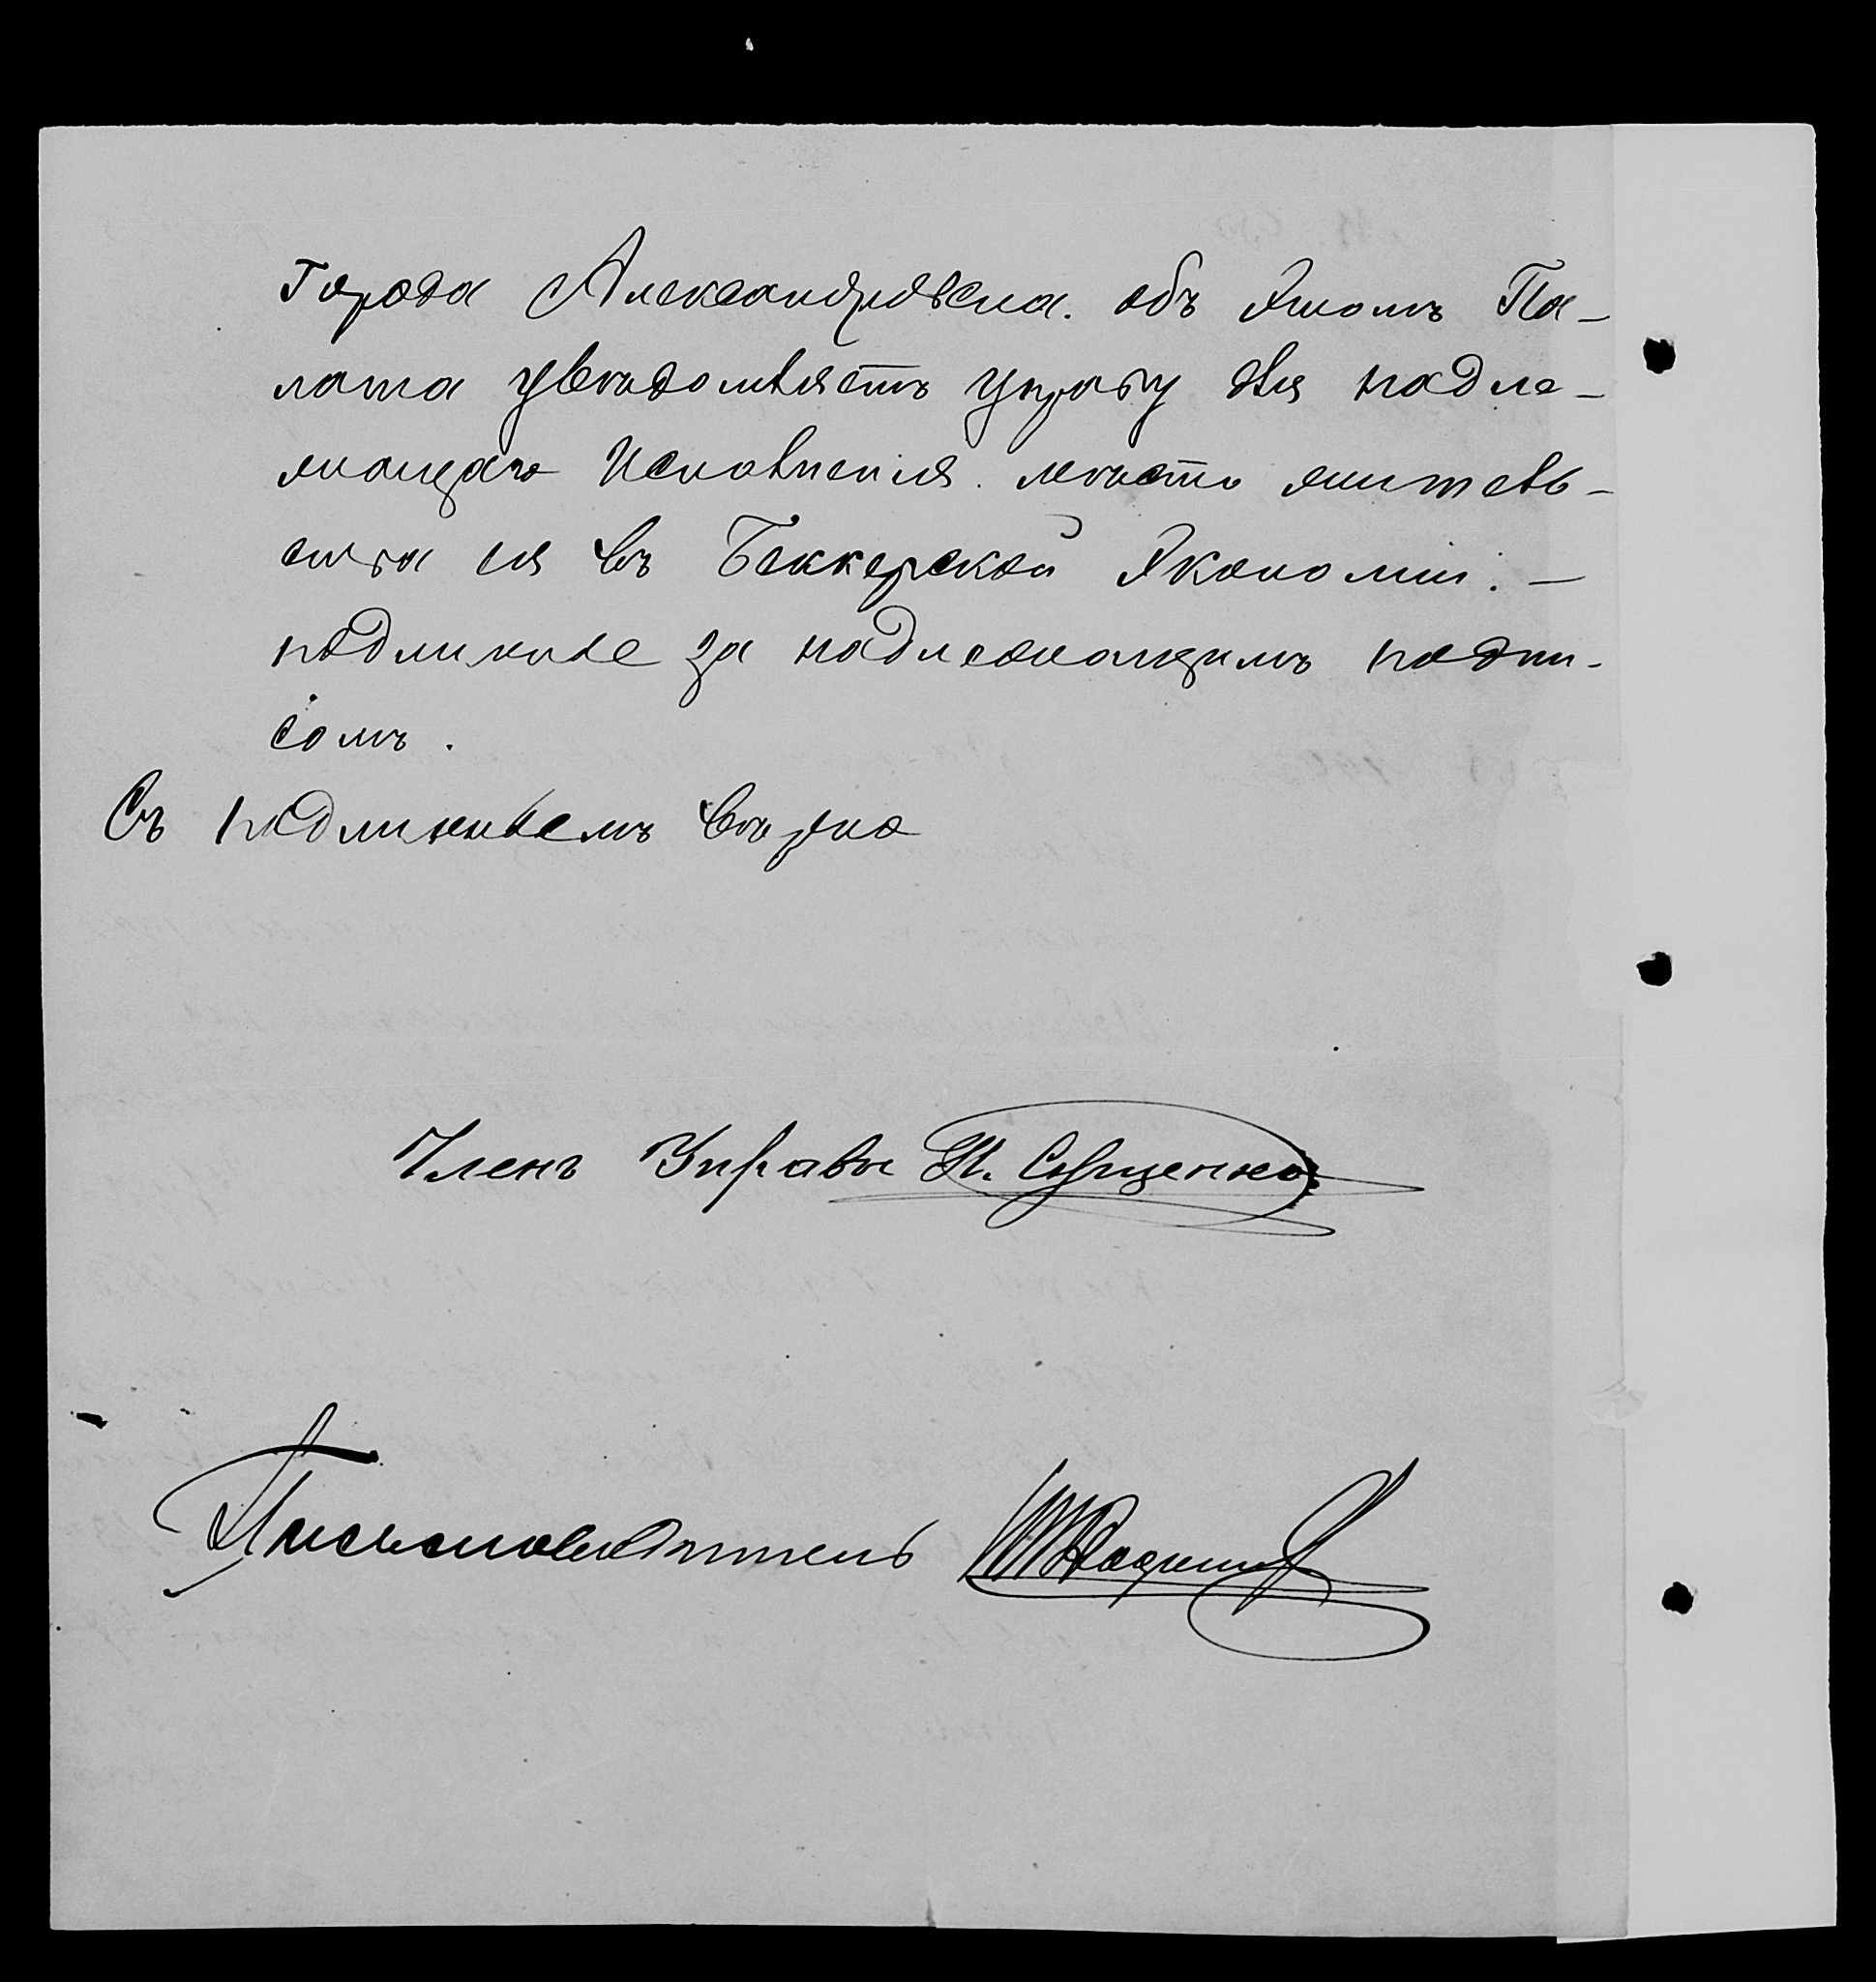 города Александровска. объ этомъ Па-
лата увѣдомляетъ управу для надле-
жащаго исполненія. мѣсто житель-
ства ея въ Беккерской Экономіи. -
подлиное за надлежащимъ подпи-
сомъ.
Съ подлиннымъ вѣрно
Членъ Управы Н. Сущенко
Письмоводитель